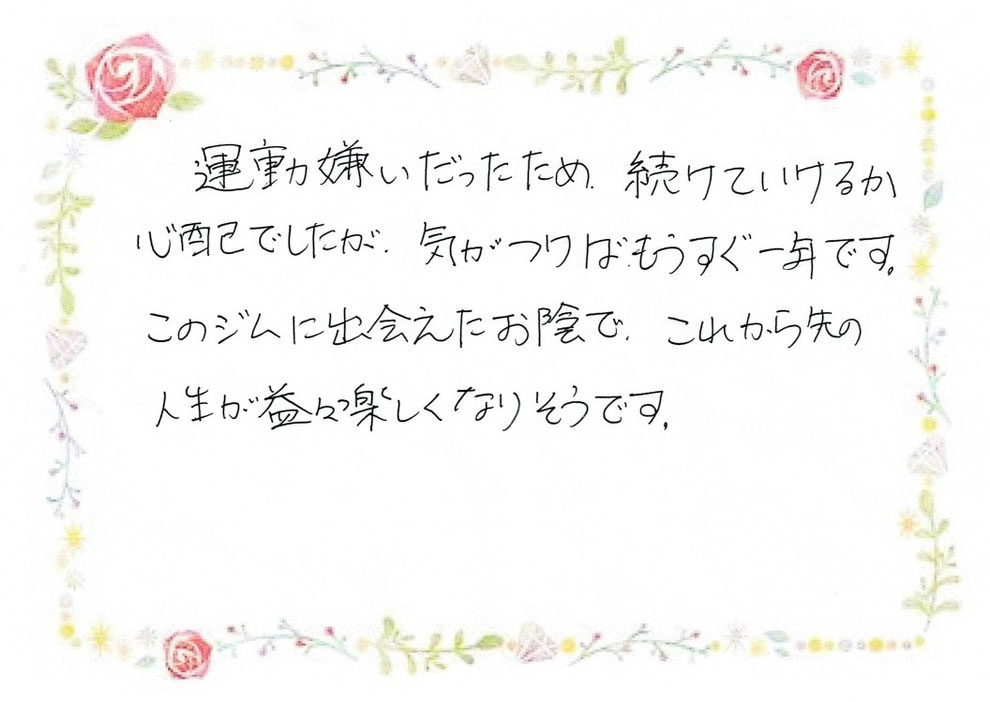 運動嫌いだったため、続けていけるか
心配でしたが、気がつけばもうすぐ一年です。
このジムに出会えたお陰で、これから先の
人生が益々楽しくなりそうです。